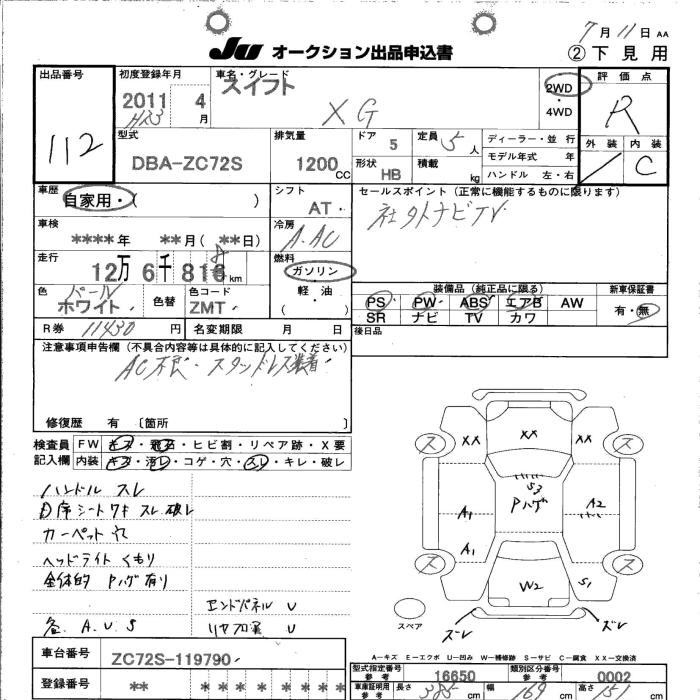 7月11日 AA
JU オークション出品申込書
② 下見用
出品番号
112
初度登録年月
2011 4
H23 月
車名・グレード
スイフト
XG
2WD
・
4WD
評価点
R
型式
DBA-ZC72S
排気量
1200 CC
ドア 5
形状 HB
定員 5 人
積載 kg
ディーラー・並行
モデル年式 年
ハンドル 左・右
外装 内装
/ C
車歴
自家用・( )
シフト
AT・
セールスポイント (正常に機能するものに限ります)
社外ナビTV
車検
****年 **月(**日)
冷房
A.AC
走行
12万6千818 km
8
燃料
ガソリン
・
軽・油
( )
色
パール
ホワイト・
色替
色コード
ZMT・
装備品 (純正品に限る)
PS PW ABS エアB AW
SR ナビ TV カワ
新車保証書
有・無
R券 11430 円 名変期限 月 日
後日品
注意事項申告欄 (不具合内容等は具体的に記入してください)
AC不良・スタッドレス装着
修復歴 有 〔箇所 〕
検査員 FW キズ・飛石・ヒビ割・リペア跡・X要
記入欄 内装 キズ・汚レ・コゲ・穴・スレ・キレ・破レ
ハンドル スレ
D席シートワキ スレ 破レ
カーペット 穴
ヘッドライト くもり
全体的 Pハゲ有り
エンドパネル U
各. A. U. S
リヤフロア U
ス XX XX XX ス
S3
Pハゲ
A1 A2
A1
ス W2 S1 ス
スペア
ズレ ズレ
A-キズ E-エクボ U-凹み W-補修跡 S-サビ C-腐食 XX-交換済
車台番号
ZC72S-119790・
登録番号
** * * * * * *
型式指定番号
参考
16650
類別区分番号
参考
0002
車庫証明用
参考
長さ 385 cm
幅 169 cm
高さ 15 cm